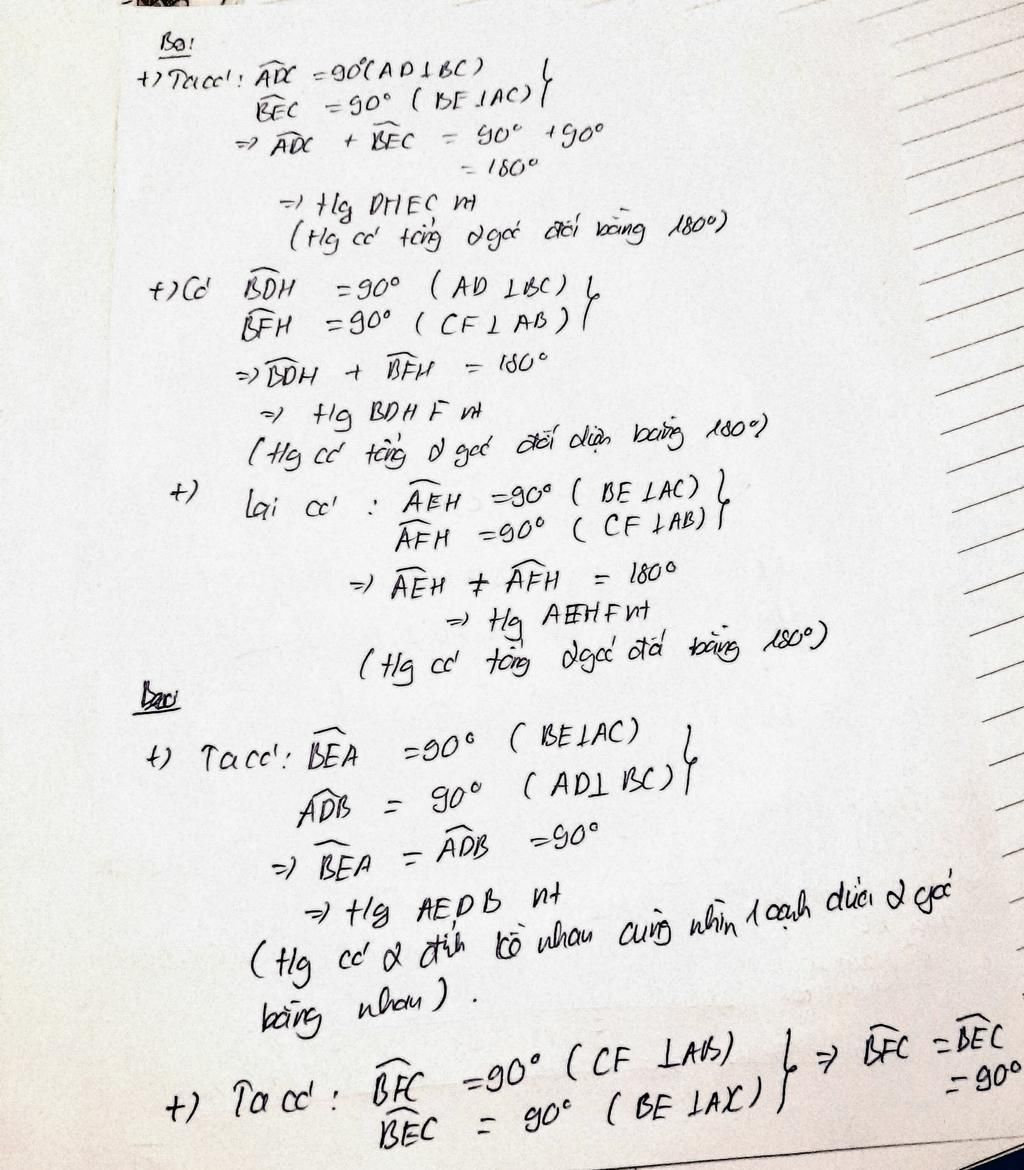 Bài
+) Ta có: ADC = 90° (AD ⊥ BC) }
BEC = 90° ( BE ⊥ AC) }
=> ADC + BEC = 90° + 90°
= 180°
=> tứg DHEC nt
(tứg có tổng 2 góc đối bằng 180°)
+) Có BDH = 90° ( AD ⊥ BC) }
BFH = 90° ( CF ⊥ AB) }
=> BDH + BFH = 180°
=> tứg BDHF nt
(tứg có tổng 2 góc đối diện bằng 180°)
+) Lại có : AEH = 90° ( BE ⊥ AC) }
AFH = 90° ( CF ⊥ AB) }
=> AEH + AFH = 180°
=> tứg AEHF nt
(tứg có tổng 2 góc đối bằng 180°)
+) Ta có: BEA = 90° ( BE ⊥ AC) }
ADB = 90° ( AD ⊥ BC) }
=> BEA = ADB = 90°
=> tứg AEDB nt
(tứg có 2 đỉnh kề nhau cùng nhìn 1 cạnh dưới 2 góc
bằng nhau).
+) Ta có : BFC = 90° ( CF ⊥ AB) } => BFC = BEC
BEC = 90° ( BE ⊥ AC) } = 90°